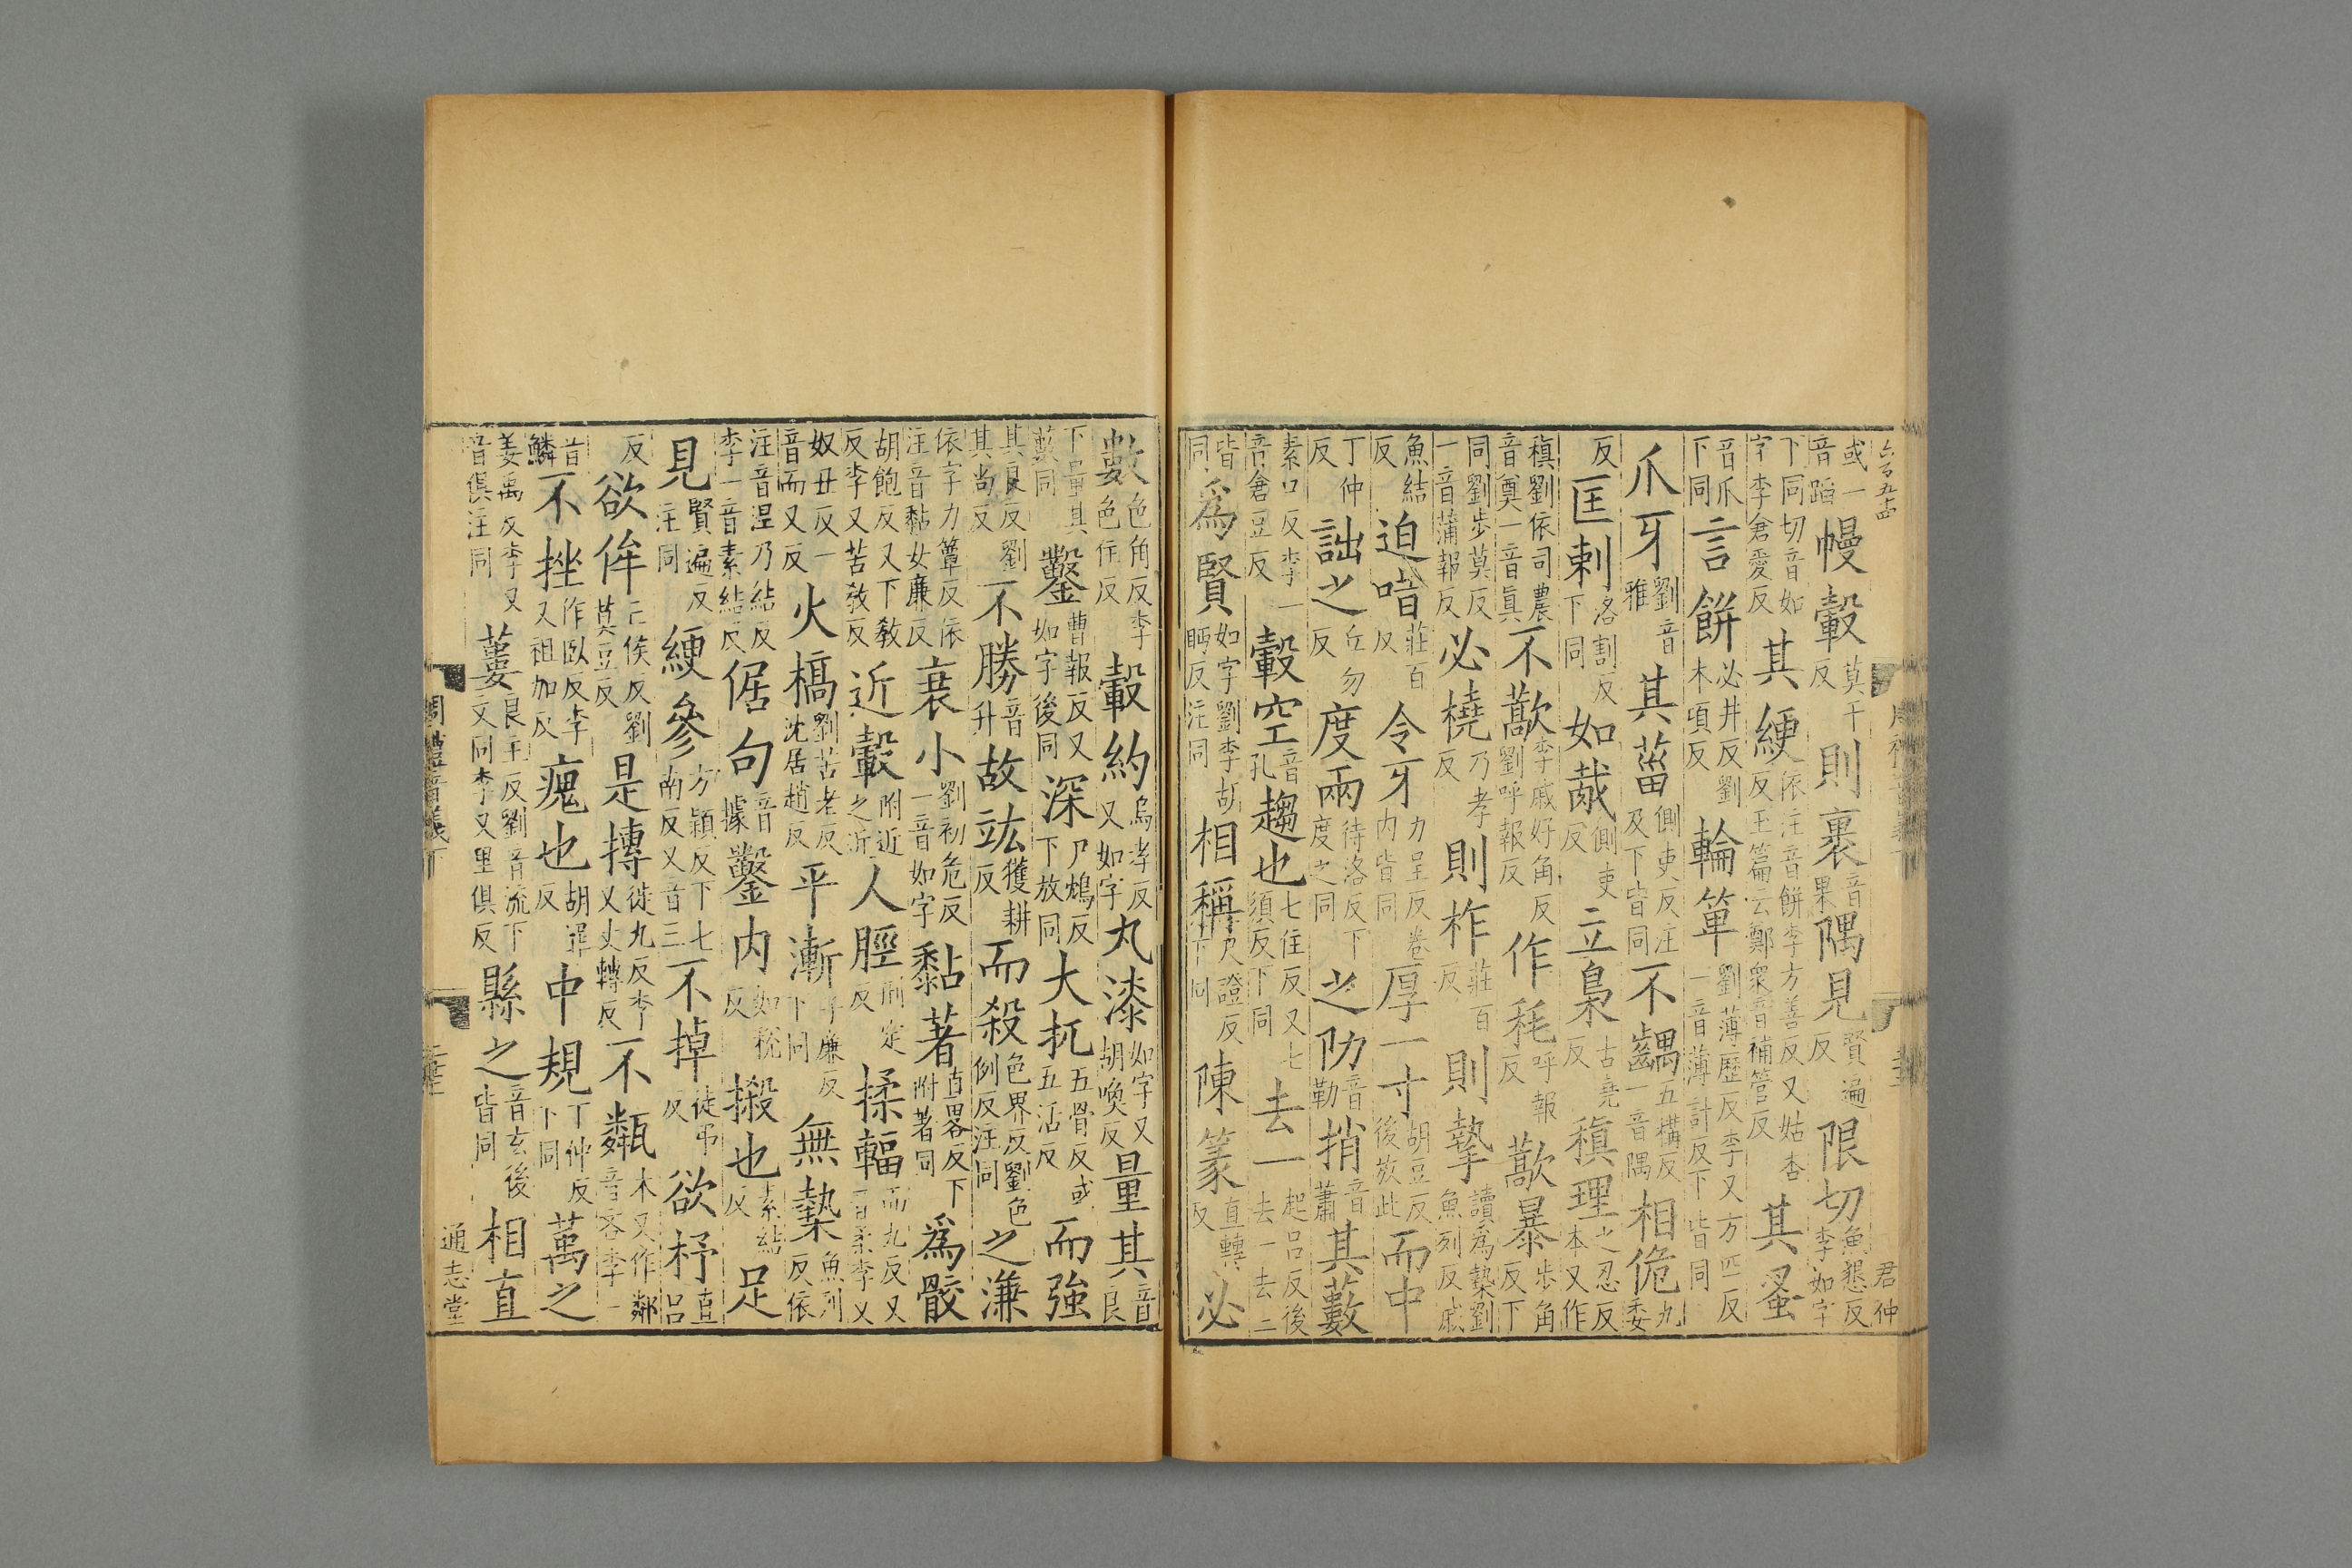 六百五十四
君仲
或一音蹈幔轂莫干反則裹音果隅見賢遍反限切魚懇反李如字
下同切音如字李倉愛反其綆依注音餅李方善反又姑杏反玉篇云鄭衆音補管反其蚤
音爪下同言餅必井反劉木頃反輪箄劉薄歷反李又方四反一音薄計反下皆同
爪牙劉音雅其菑側吏反注及下皆同不齵五構反一音隅相佹九委
反匡剌洛割反下同如胾側吏反立梟古堯反稹理之忍反本又作
稹劉依司農音奠一音眞不藃李戚好角反劉呼報反作秏呼報反藃暴步角反下
同劉步莫反一音蒲報反必橈乃孝反則柞莊百反則摯讀爲槷劉魚列反戚
魚結反迫唶莊百反令牙力呈反卷内皆同厚一寸胡豆反後放此而中
丁仲反詘之丘勿反度兩待洛反下度之同之阞音勒捎音蕭其藪
素口反李一音倉豆反轂空音孔趨也七住反又七須反下同去一起呂反後去一去二
皆同爲賢如字劉李胡眄反注同相稱尺證反下同陳篆直轉反必
數色角反李色住反轂約烏孝反又如字丸漆如字又胡喚反量其音良
下量其藪同鑿曹報反又如字後同深尸鴆反下放同大扤五骨反或五活反而強
其良反劉其尚反不勝音升故竑獲耕反而殺色界反劉色例反注同之溓
依字力簟反依注音黏女廉反衰小劉初危反一音如字黏著直畧反下附著同爲骹
胡飽反又下教反李又苦教反近轂附近之近人脛刑定反揉輻而九反又一音柔李又
奴丑反一音而又反火槁劉苦老反沈居趙反平漸子廉反下同無槷魚列反依
注音涅乃結反李一音素結反倨句音據鑿内如銳反摋也素結反足
見賢遍反注同綆參方穎反下七南反又音三不掉徒弔反欲杼直呂
反欲侔亡侯反劉莫豆反是摶徒丸反李又丈轉反不甐本又作鄰音吝李一
音鱗不挫作臥反李又祖加反瘣也胡罪反中規丁仲反下同萬之
姜禹反李又音俱注同萭良主反劉音流下文同李又里俱反縣之音玄後皆同相直
周禮音義下
通志堂